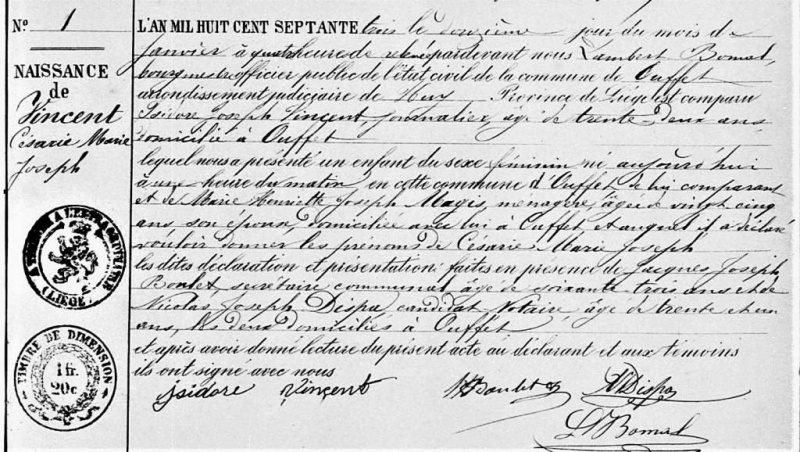 No 1
NAISSANCE
de
Vincent
Césarie Marie
Joseph
A L'EXTRAORDINAIRE
(LIÉGE)
TIMBRE DE DIMENSION
1 fr.
20c
L'AN MIL HUIT CENT SEPTANTE trois le douzième jour du mois de
Janvier à quatre heure de relevé pardevant nous Lambert Bomal,
bourgmestre officier public de l'état civil de la commune de Ouffet
arrondissement judiciaire de Huy Province de Liége est comparu
Isidore Joseph Vincent journalier, âgé de trente deux ans
domicilié à Ouffet
lequel nous a présenté un enfant du sexe féminin né aujourd'hui
à une heure du matin, en cette commune d'Ouffet de lui comparant
et de Marie Henriette Joseph Magis, menagère, âgée de vingt cinq
ans son épouse, domiciliée avec lui à Ouffet, et auquel il a déclaré
vouloir donner les prénoms de Césarie Marie Joseph
les dites déclaration et présentation faites en présence de Jacques Joseph
Boulet, secrétaire communal, âgé de soixante trois ans et de
Nicolas Joseph Dispa, candidat Notaire, âgé de trente et un
ans, les deux domiciliés à Ouffet
et après avoir donné lecture du présent acte au déclarant et aux témoins
ils ont signé avec nous
isidore vinçent JJ Boulet NJ Dispa
L Bomal